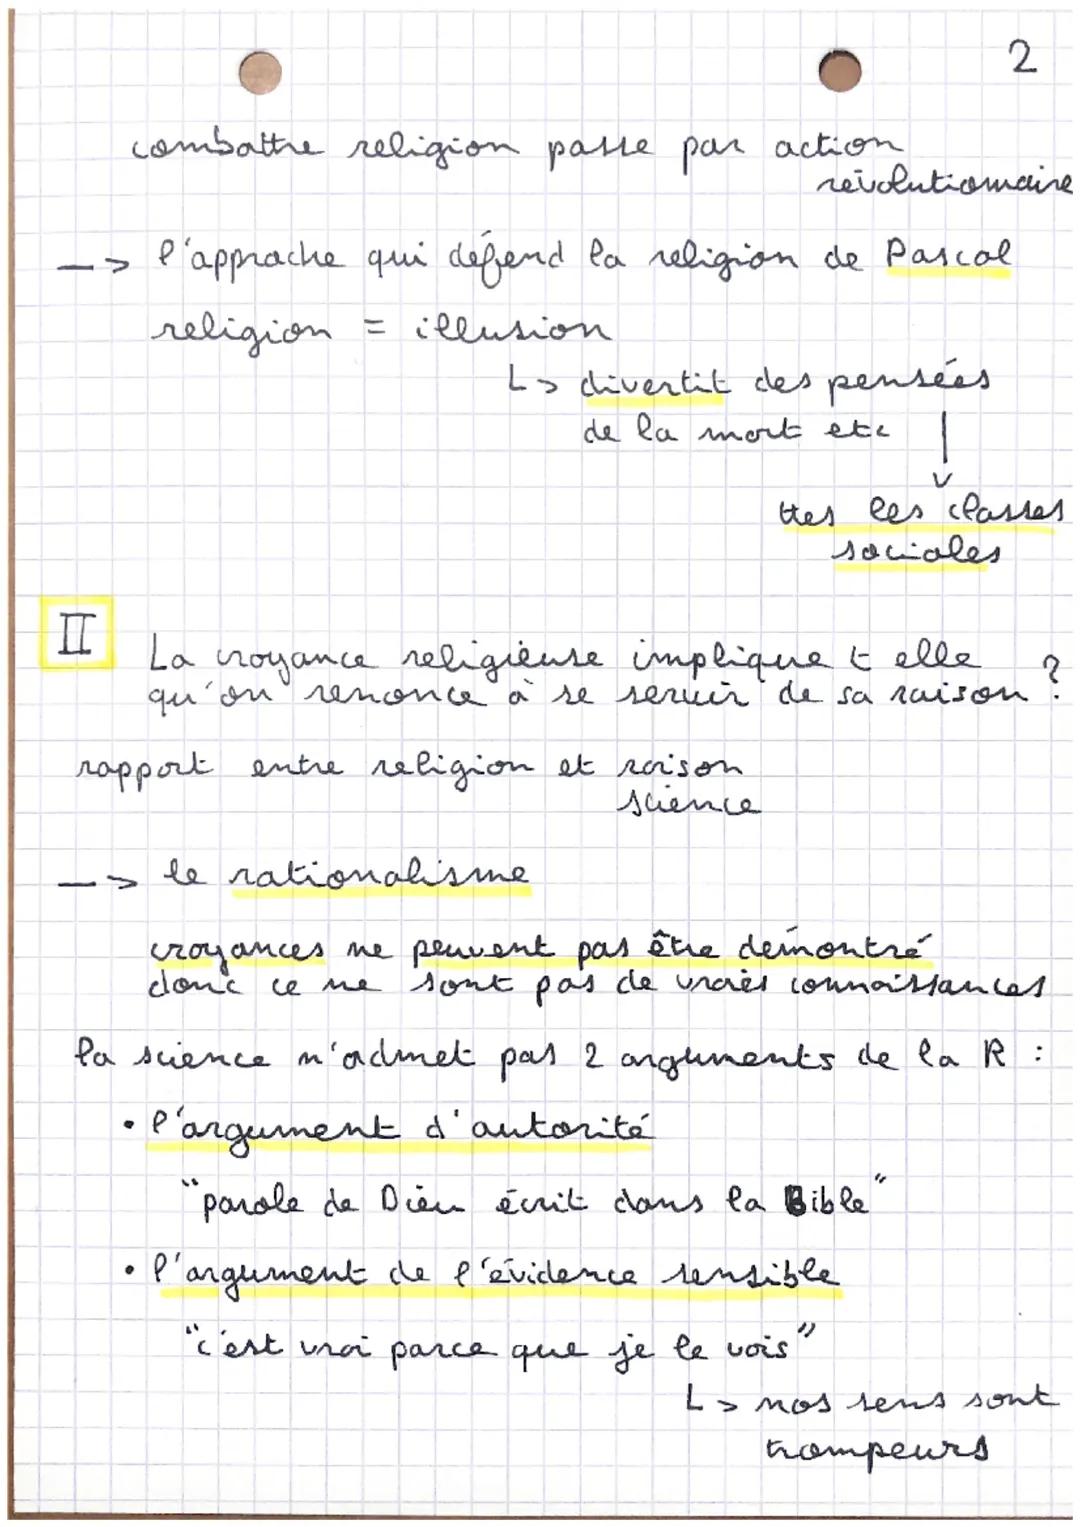 2
combattre religion passe par action
révolutionnaire
--> l'approche qui défend la religion de Pascal
religion = illusion
L> divertit des pensées
de la mort etc
ttes les classes
sociales
II
La croyance religieuse implique t elle
qu'on renonce à se servir de sa raison ?
rapport entre religion et raison
science
--> le rationalisme
croyances ne peuvent pas être démontré
donc ce ne sont pas de vraies connaissances
la science n'admet pas 2 arguments de la R :
• l'argument d'autorité
"parole de Dieu écrit dans la Bible"
• l'argument de l'évidence sensible
"c'est vrai parce que je le vois"
L> nos sens sont
trompeurs